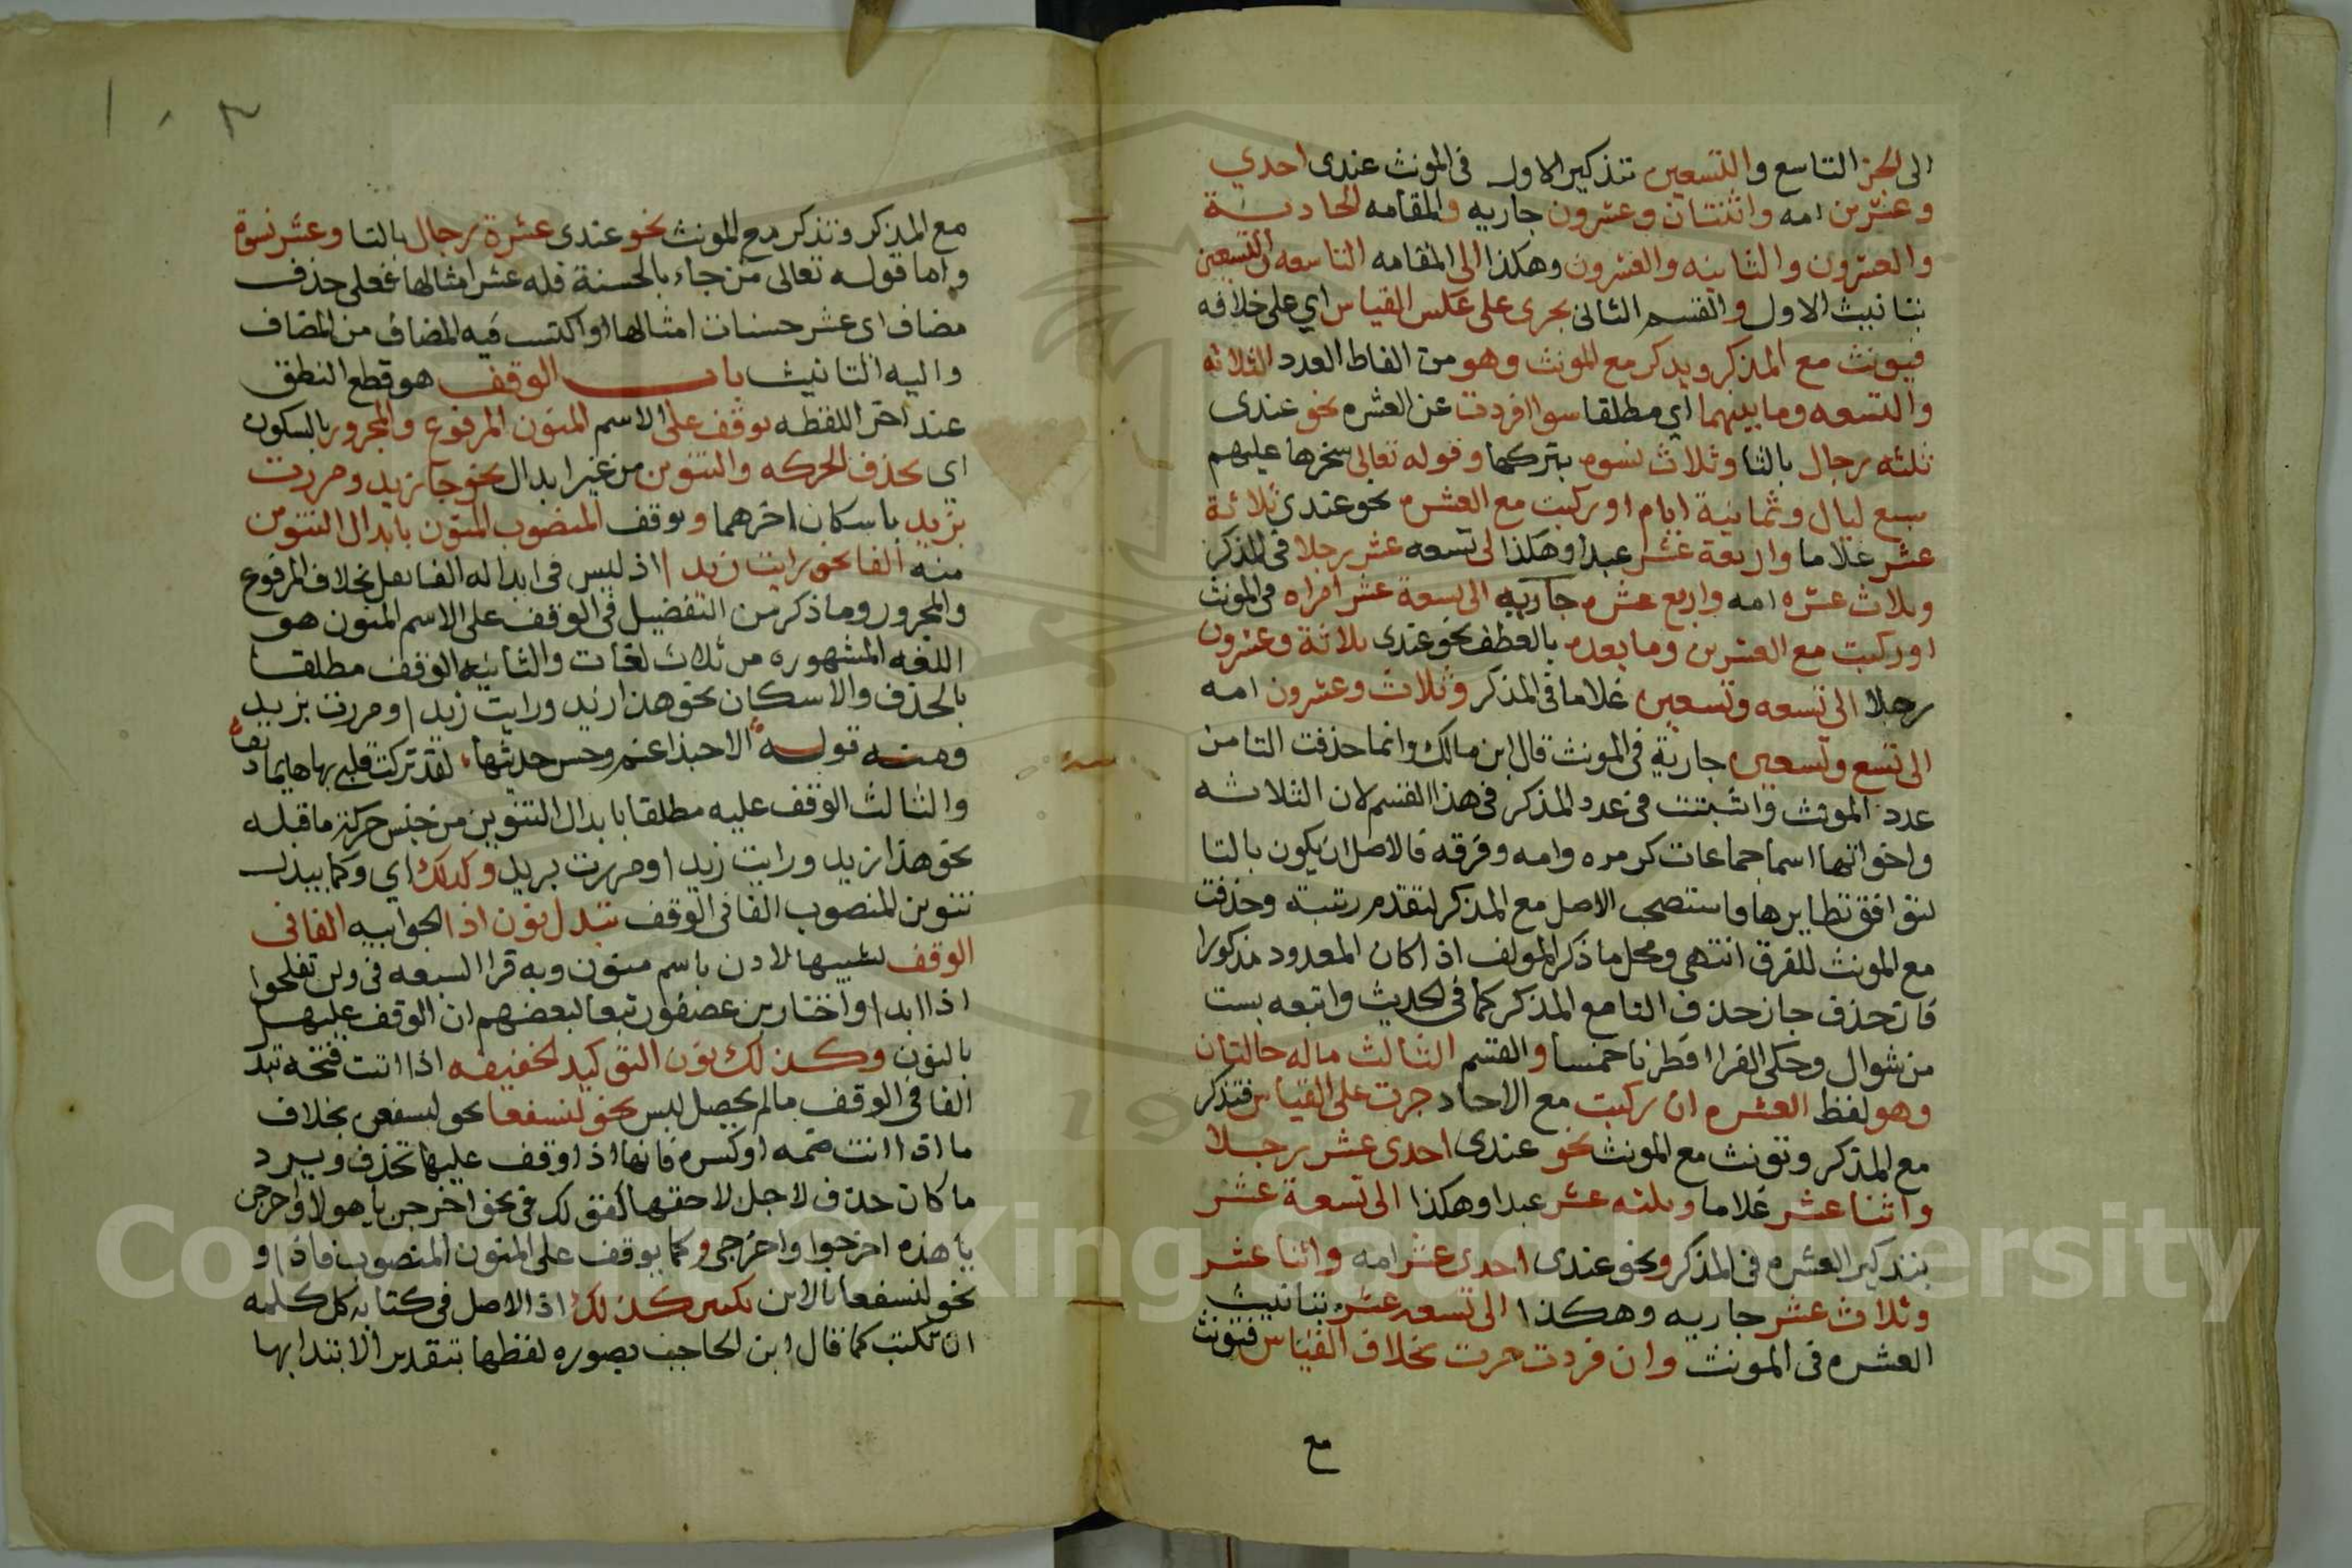 الى الجز التاسع والتسعين تتذكير الاول فى المونث عندى احدي
وعشرين امه واثنتان وعشرون جاريه والمقامه الحادية
والعشرون والثانيه والعشرون وهكذا الى المقامه التاسعه والتسعين
بتانيث الاول والقسم الثانى يجرى على عكس القياس اي على خلافه
فيونث مع المذكر ويذكر مع المونث وهو من الفاظ العدد الثلاثه
والتسعه وما بينهما اي مطلقا سوا افردت عن العشره نحو عندى
ثلثه رجال بالتا وثلاث نسوه بتركها وقوله تعالى سخرها عليهم
سبع ليال وثمانية ايام او ركبت مع العشره نحو عندي ثلاثة
عشر غلاما واربعة عشر عبدا وهكذا الى تسعه عشر رجلا فى المذكر
وثلاث عشره امه واربع عشره جاريه الى تسعة عشر امراه فى المونث
او ركبت مع العشرين وما بعده بالعطف نحو عندى ثلاثة وعشرون
رجلا الى تسعه وتسعين غلاما فى المذكر وثلاث وعشرون امه
الى تسع وتسعين جارية فى المونث قال ابن مالك وانما حذفت التا من
عدد المونث واثبتت فى عدد المذكر فى هذا القسم لان الثلاثه
واخواتها اسما جماعات كزمره وامه وفرقه فالاصل ان يكون بالتا
لتوافق نظايرها فاستصحب الاصل مع المذكر لتقدم رتبته وحذفت
مع المونث للفرق انتهى ومحل ما ذكر المولف اذا كان المعدود مذكورا
فان حذف جاز حذف التا مع المذكر كما فى الحديث واتبعه بست
من شوال وحكى الفرا افطرنا خمسا والقسم الثالث ماله حالتان
وهو لفظ العشره ان ركبت مع الاحاد جرت على القياس فتذكر
مع المذكر وتونث مع المونث نحو عندى احدى عشر رجلا
واثنا عشر غلاما وثلثه عشر عبدا وهكذا الى تسعة عشر
بتذكير العشره فى المذكر ونحو عندى احدى عشر امه واثنا عشر
وثلاث عشر جاريه وهكذا الى تسعه عشر بتانيث
العشره فى المونث وان فردت جرت بخلاف القياس فتونث
مع
مع المذكر وتذكر مع المونث نحو عندى عشرة رجال بالتا وعشر نسوة
واما قوله تعالى من جاء بالحسنة فله عشر امثالها فعلى حذف
مضاف اى عشر حسنات امثالها او اكتسب فيه المضاف من المضاف
واليه التانيث باب الوقف هو قطع النطق
عند اخر اللفظه يوقف على الاسم المنون المرفوع والمجرور بالسكون
اى بحذف الحركه والتنوين من غير ابدال نحو جا زيد ومررت
بزيد باسكان اخرهما ويوقف المنصوب المنون بابدال التنوين
منه الفا نحو رايت زيدا اذ ليس فى ابداله الفا ثقل بخلاف المرفوع
والمجرور وما ذكر من التفضيل فى الوقف على الاسم المنون هو
اللغه المشهوره من ثلاث لغات والثانيه الوقف مطلقا
بالحذف والاسكان نحو هذا زيد ورايت زيدا ومررت بزيد
ومنه قوله الا حبذا غنم وحسن حديثها لقد تركت قلبى بها هايما دنف
والثالث الوقف عليه مطلقا بابدال التنوين من جنس حركة ما قبله
نحو هذا زيد ورايت زيدا ومررت بزيد وكذلك اي وكما يبدل
تنوين المنصوب الفا فى الوقف تبدل نون اذا الجوابيه الفا فى
الوقف تشبيها لاذن باسم منون وبه قرا السبعه فى ولن تفلحوا
اذا ابدا واختار بن عصفور تبعا لبعضهم ان الوقف عليها
بالنون وكذلك نون التوكيد الخفيفه اذا اتت فتحه تبد
الفا فى الوقف ما لم يحصل لبس نحو لنسفعا نحو لنسفعن بخلاف
ما اذا اتت ضمه او كسره فانها اذا وقف عليها تحذف ويرد
ما كان حذف لاجل لاحقها كقولك فى نحو اخرجن يا هولا واخرجن
يا هذه اخرجوا واخرجى وكما يوقف على المنون المنصوب فاذا و
نحو لنسفعا بالالف تكتب كذلك اذ الاصل فى كتابه كل كلمه
ان تكتب كما قال ابن الحاجب بصوره لفظها بتقدير الابتدا بها
Copyright © King Saud University